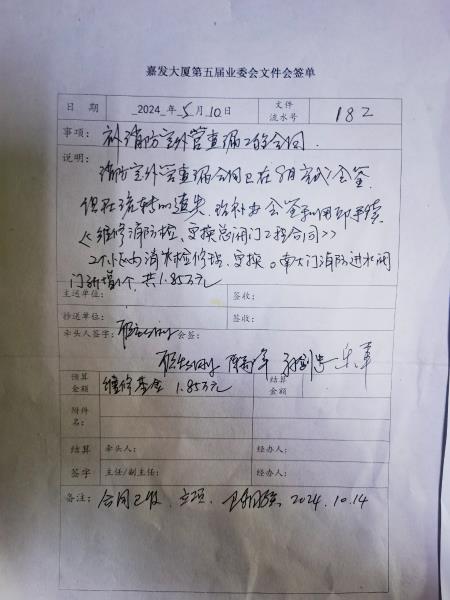 嘉发大厦第五届业委会文件会签单
日 期 2024 年 5 月 10 日 文件流水号 182
事项: 补消防室外管查漏工程合同.
说明: 消防室外管查漏合同已在 会签
但在流转时遗失. 现补办会签和用印手续
《维修消防栓、更换总阀门工程合同》
2个小区内消火栓修理、更换。南大门消防进水阀
门新增1个, 共1.85万元
主送单位: 签收:
抄送单位: 签收:
牵头人签字: 会签:
预算金额 维修基金 1.85万元 结算金额
附件名:
结算签字 牵头人: 经办人:
主任/副主任: 经办人:
备注: 合同已收. 2024.10.14